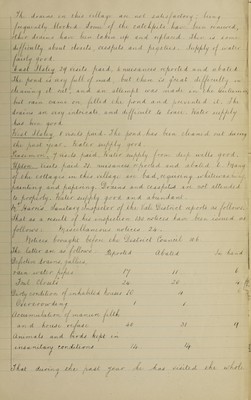 The drains in this village are not satisfactory; being
frequently blocked. Some of the catchpits have been renewed,
other drains have been taken up and replaced. There is some
difficulty about closets, cesspits and pigsties. Supply of water
fairly good.
East Ilsley. 29 visits paid, 6 nuisances reported and abated.
The pond is very full of mud but there is great difficulty in
cleaning it out, and an attempt was made in the autumn
but rain came on filled the pond and prevented it. The
drains are very intricate and difficult to trace. Water supply
has been good.
West Ilsley. 8 visits paid. The pond has been cleaned out during
the past year. Water supply good.
7 visits paid. Water supply from deep wells good.
Upton. visits paid. 12 nuisances reported and abated. Many
of the cottages in this village are bad, requiring whitewashing
painting and papering. Drains and cesspits are not attended
to properly. Water supply good and abundant.
Sanitary Inspector of the District reports as follows:
that as a result of his inspection notices have been issued as
follows. Miscellaneous notices 24.
Notices brought before the District Council 116.
The latter are as follows. Reported Abated In hand
Defective drains, gullies,
rain water pipes 17 11 6
Foul Closets 24 20 4
Dirty condition of inhabited houses 20
Overcrowding 1 1
Accumulation of manure filth
and house refuse
Animals and birds kept in
insanitary conditions 14
That during the past year he has visited the whole